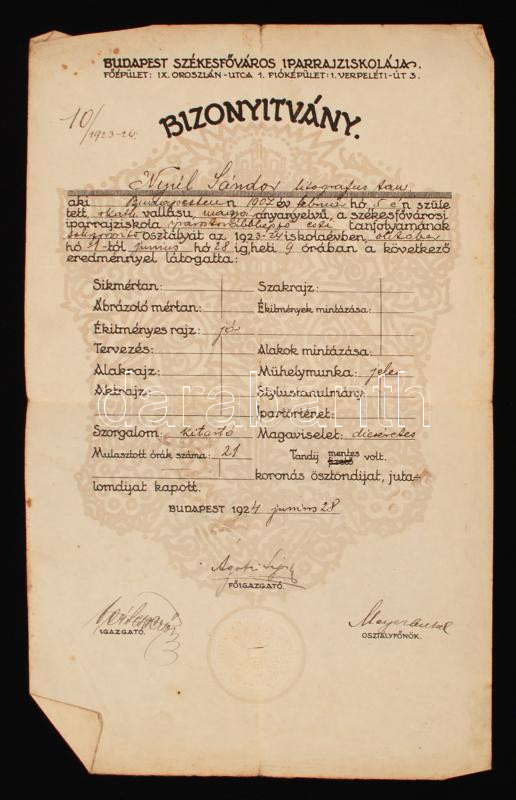 BUDAPEST SZÉKESFŐVÁROS IPARRAJZISKOLÁJA.
FŐÉPÜLET: IX. OROSZLÁN-UTCA 1. FIÓKÉPÜLET: I. VERPELÉTI-ÚT 3.
10/1923-24.
BIZONYITVÁNY.
Sándor litografus tan.
aki Budapesten n 1907 év február hó 5 é'n szüle
tett, vallásu, magyar anyanyelvű, a székesfővárosi
iparrajziskola esti tanfolyamának
osztályát az 1923-24 iskolaévben, október
hó 31-től junius hó 28 igheti 9 órában a következő
eredménnyel látogatta:
Sikmértan: Szakrajz:
Ábrázoló mértan: Ékitmények mintázása:
Ékitményes rajz: jó
Tervezés: Alakok mintázása:
Alakrajz: Műhelymunka: jeles
Aktrajz: Stylustanulmány:
darabanth
Ipartörténet:
Szorgalom: kitartó Magaviselet: dicséretes
Mulasztott órák száma: 21 Tandij mentes fizető volt.
koronás ösztöndijat, juta-
lomdijat kapott.
BUDAPEST 1924 junius 28
FŐIGAZGATÓ.
IGAZGATÓ.
OSZTÁLYFŐNÖK.